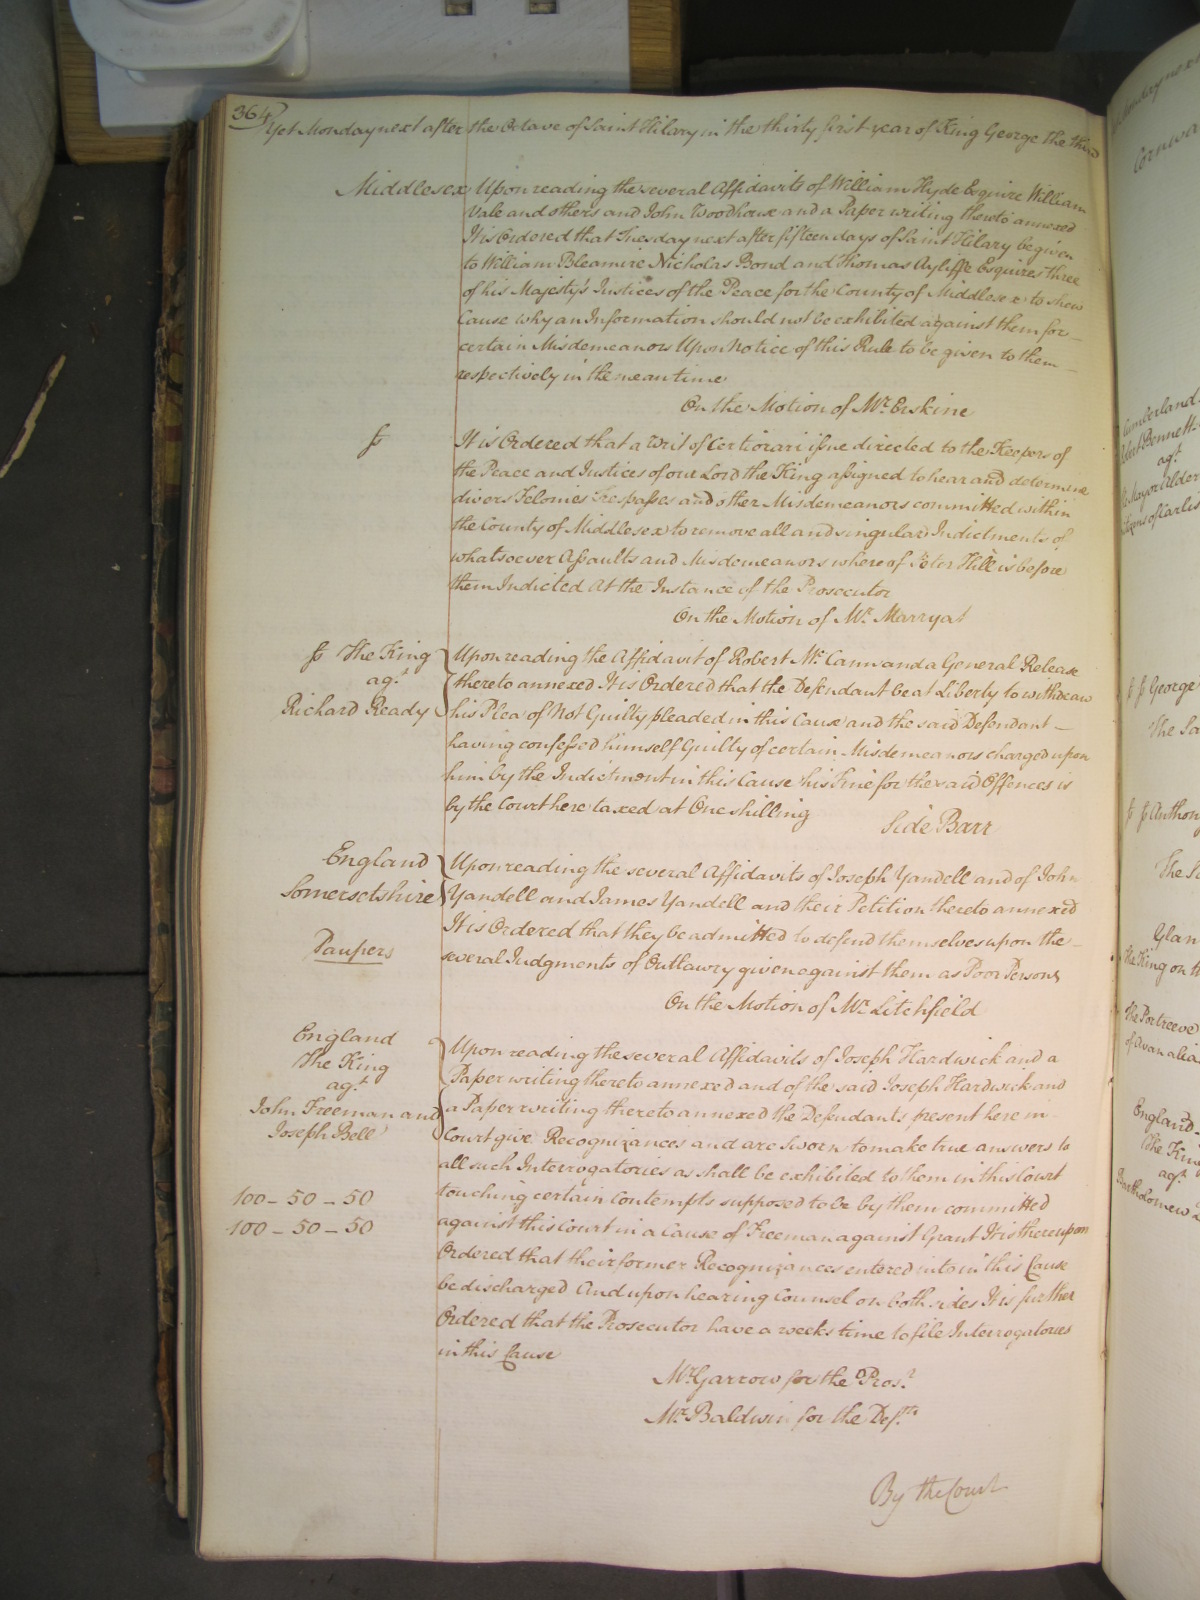 364
Yet Monday next after the Octave of Saint Hilary in the thirty first year of King George the third
Middlesex Upon reading the several Affidavits of William Hyde Esquire William
Vale and others and John Woodhouse and a Paper writing thereto annexed
It is Ordered that Tuesday next after fifteen days of Saint Hilary be given
to William Bleamire Nicholas Bond and Thomas Ayliffe Esquires three
of his Majesty's Justices of the Peace for the County of Middlesex to shew
Cause why an Information should not be exhibited against them for
certain Misdemeanors Upon Notice of this Rule to be given to them
respectively in the mean time
On the Motion of Mr. Erskine
It is Ordered that a Writ of Certiorari issue directed to the Keepers of
the Peace and Justices of our Lord the King assigned to hear and determine
divers Felonies Trespasses and other Misdemeanors committed within
the County of Middlesex to remove all and singular Indictments of
whatsoever Assaults and Misdemeanors whereof Peter Hill is before
them Indicted At the Instance of the Prosecutor
On the Motion of Mr. Marryat
The King
agt.
Richard Ready
Upon reading the Affidavit of Robert Mc Cann and a General Release
thereto annexed It is Ordered that the Defendant be at Liberty to withdraw
his Plea of Not Guilty pleaded in this Cause and the said Defendant
having confessed himself Guilty of certain Misdemeanors charged upon
him by the Indictment in this Cause his Fine for the said Offences is
by the Court here taxed at One shilling
Side Barr
England
Somersetshire
Paupers
Upon reading the several Affidavits of Joseph Yandell and of John
Yandell and James Yandell and their Petition thereto annexed
It is Ordered that they be admitted to defend themselves upon the
several Judgments of Outlawry given against them as Poor Persons
On the Motion of Mr. Litchfield
England
The King
agt.
John Freeman and
Joseph Bell
100 - 50 - 50
100 - 50 - 50
Upon reading the several Affidavits of Joseph Hardwick and a
Paper writing thereto annexed and of the said Joseph Hardwick and
a Paper writing thereto annexed the Defendants present here in
Court give Recognizances and are Sworn to make true answers to
all such Interrogatories as shall be exhibited to them in this Court
touching certain Contempts supposed to be by them committed
against this Court in a Cause of Freeman against Grant It is thereupon
Ordered that their former Recognizances entered into in this Cause
be discharged And upon hearing Counsel on both sides It is further
Ordered that the Prosecutor have a weeks time to file Interrogatories
in this Cause
Mr. Garrow for the Pros.r
Mr. Baldwin for the Def.ts
By the Court
Cumberland
Robert Bennett
agt.
George
Anthony
England
agt.